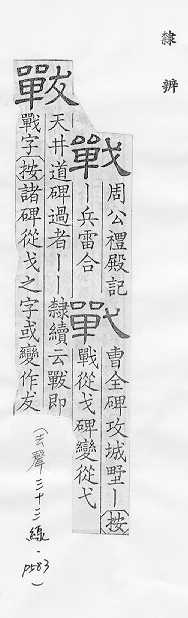 隸辨
戰
周公禮殿記
丨兵雷合
戰
曹全碑攻城墅丨按
戰從戈碑變從弋
戰
天井道碑過者丨丨隸續云戰即
戰字按諸碑從戈之字或變作友
(去聲三十三線·p583)